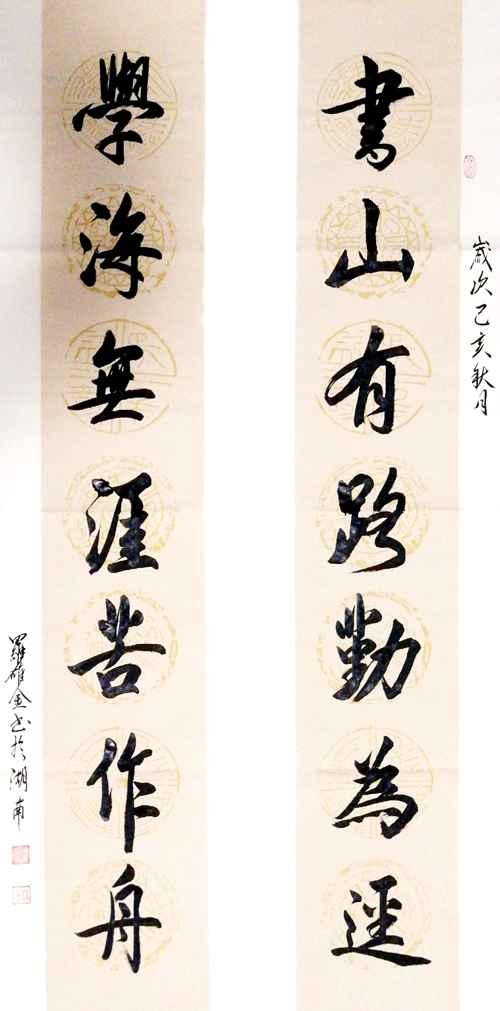 歲次己亥秋月
書山有路勤為逕
學海無涯苦作舟
羅雄金书於湖南